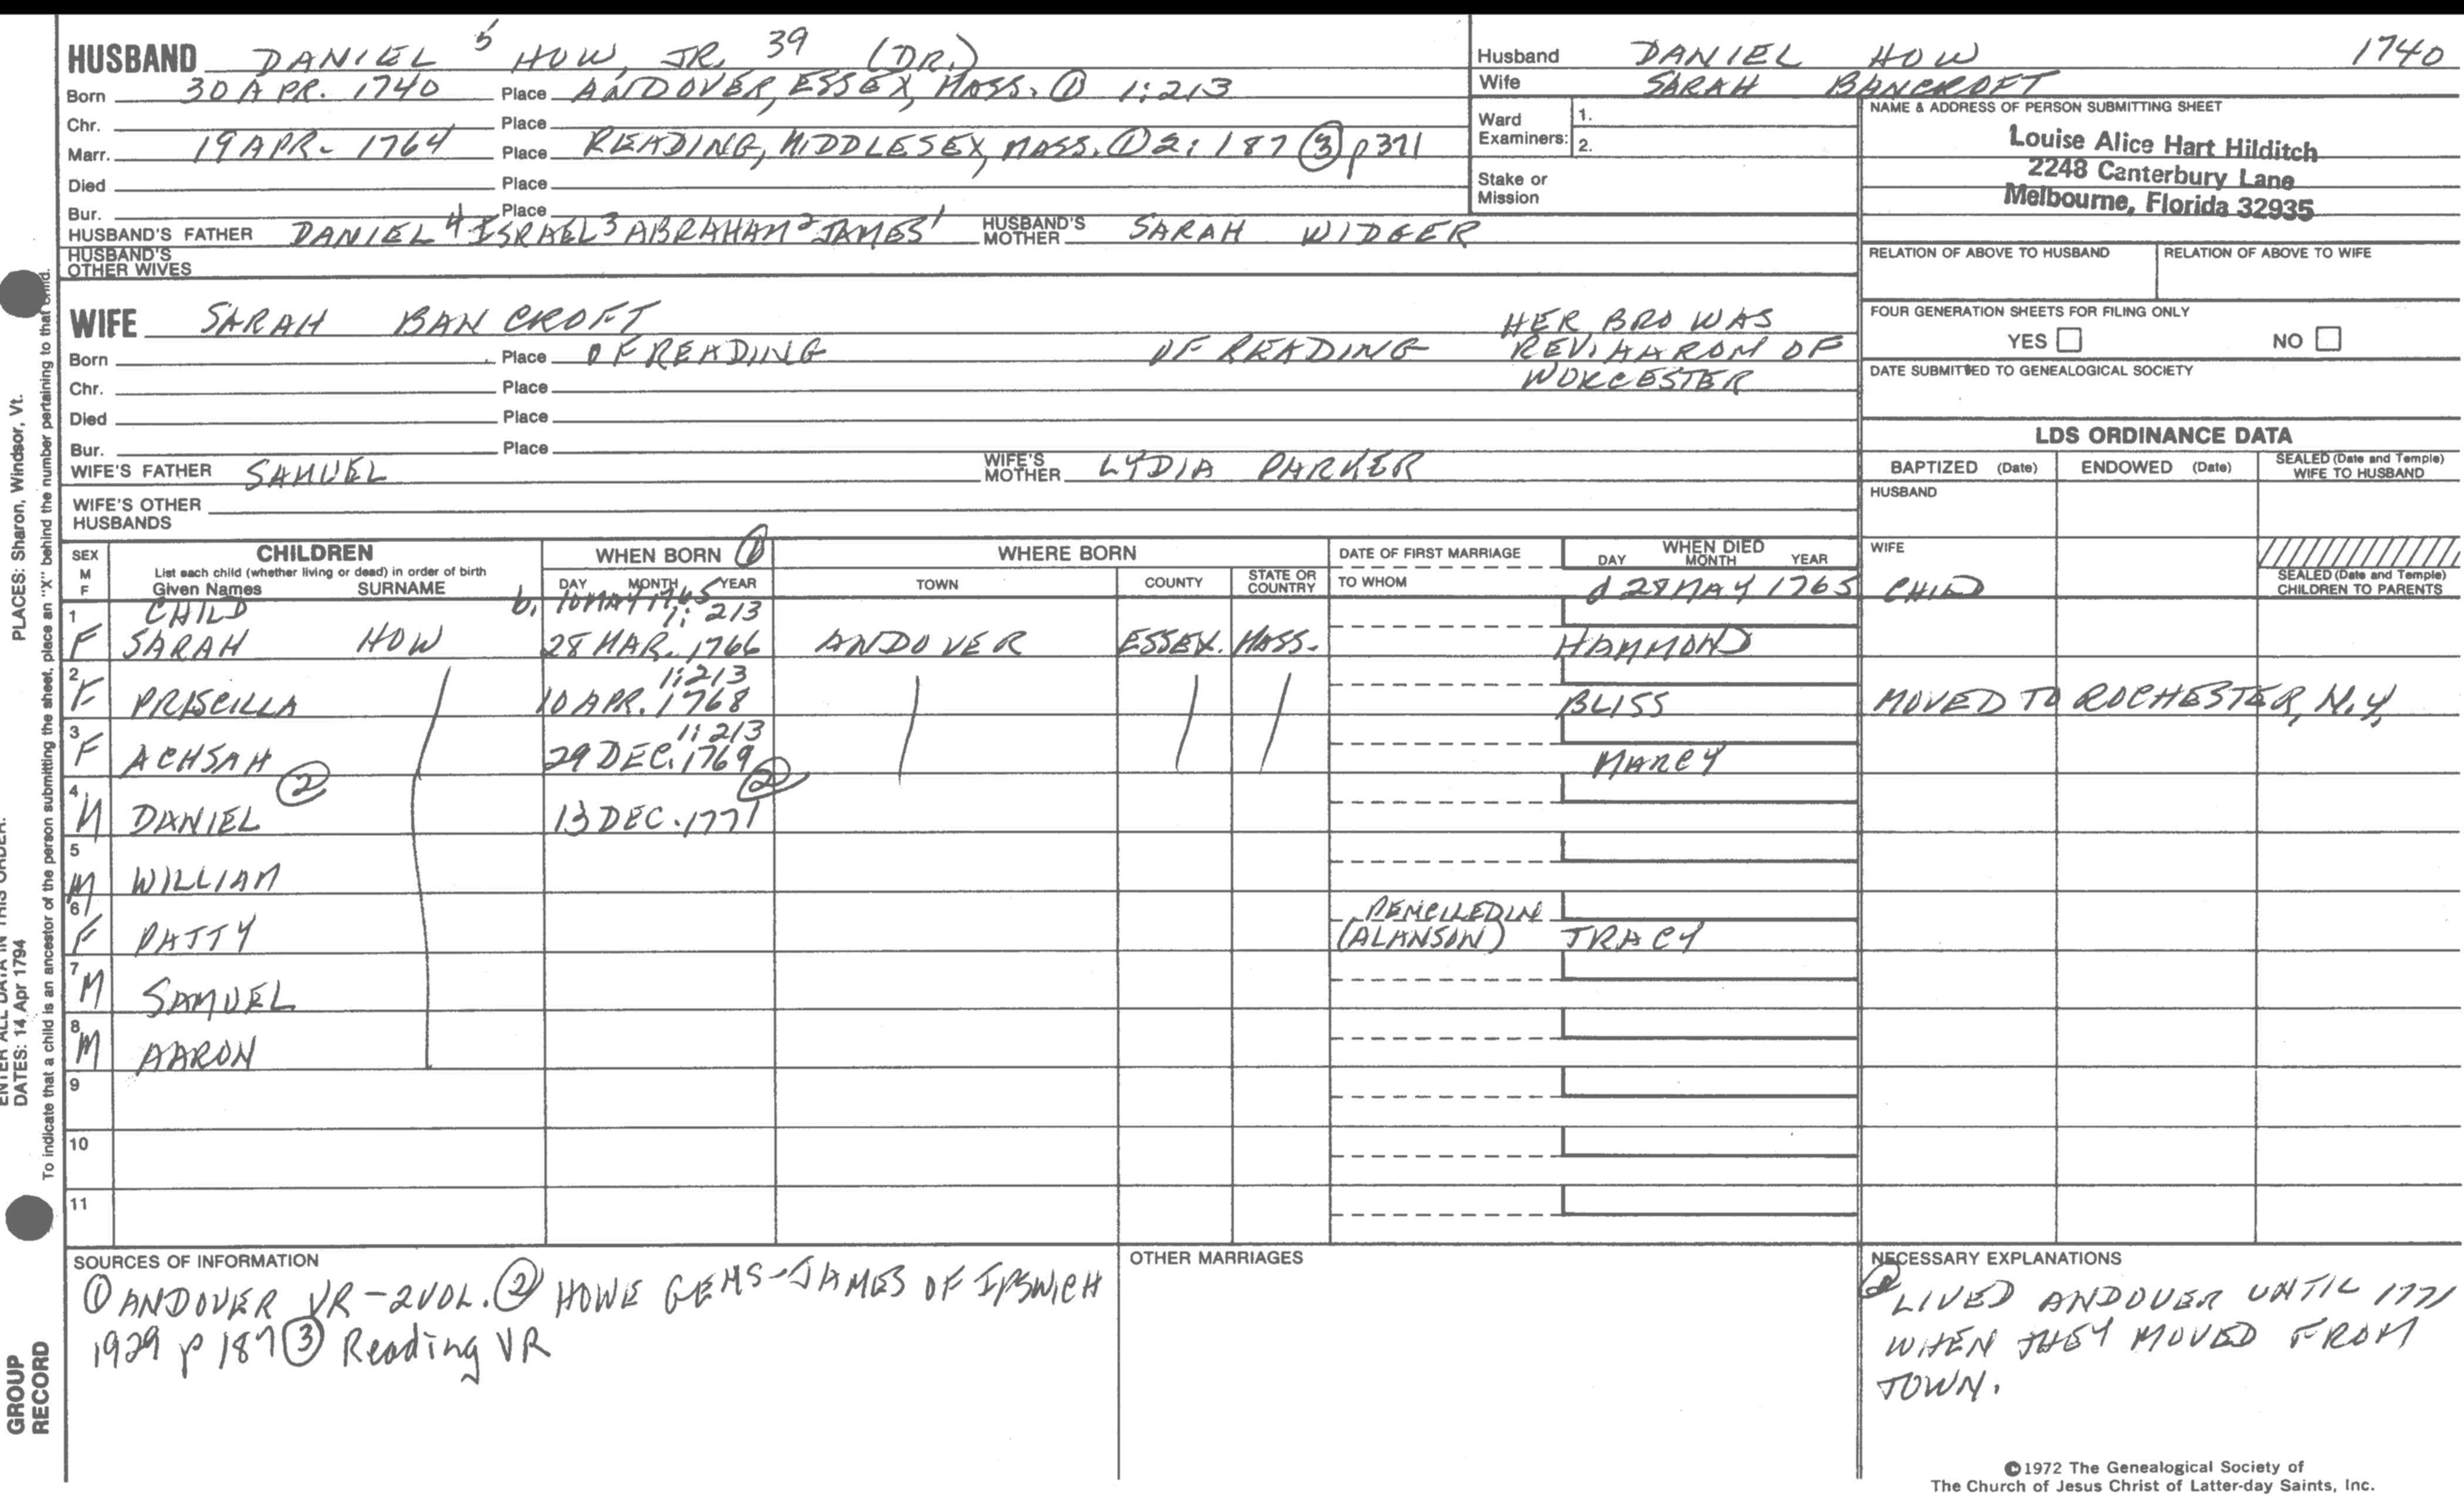 HUSBAND DANIEL 5 HOW, JR. 39 (DR.)
Born 30 APR. 1740 Place ANDOVER, ESSEX, MASS. ① 1:213
Chr. Place
Marr. 19 APR- 1764 Place READING, MIDDLESEX, MASS. ① 2:187 ③ p371
Died Place
Bur. Place
HUSBAND'S FATHER DANIEL 4 ISRAEL 3 ABRAHAM 2 JAMES 1 HUSBAND'S MOTHER SARAH WIDGER
HUSBAND'S OTHER WIVES
Husband DANIEL HOW 1740
Wife SARAH BANCROFT
Ward Examiners: 1.
2.
Stake or Mission
NAME & ADDRESS OF PERSON SUBMITTING SHEET
Louise Alice Hart Hilditch
2248 Canterbury Lane
Melbourne, Florida 32935
RELATION OF ABOVE TO HUSBAND RELATION OF ABOVE TO WIFE
FOUR GENERATION SHEETS FOR FILING ONLY
YES NO
DATE SUBMITTED TO GENEALOGICAL SOCIETY
WIFE SARAH BANCROFT
Born Place OF READING OF READING
HER BRO WAS
REV. AARON OF
WORCESTER
Chr. Place
Died Place
Bur. Place
WIFE'S FATHER SAMUEL WIFE'S MOTHER LYDIA PARKER
WIFE'S OTHER HUSBANDS
LDS ORDINANCE DATA
BAPTIZED (Date) ENDOWED (Date) SEALED (Date and Temple) WIFE TO HUSBAND
HUSBAND
WIFE
SEALED (Date and Temple) CHILDREN TO PARENTS
SEX M F CHILDREN WHEN BORN ① WHERE BORN DATE OF FIRST MARRIAGE WHEN DIED
List each child (whether living or dead) in order of birth
Given Names SURNAME DAY MONTH YEAR TOWN COUNTY STATE OR COUNTRY TO WHOM DAY MONTH YEAR
CHILD b. 10 MAY 1765 d 28 MAY 1765 CHILD
1:213
1 F SARAH HOW 28 MAR. 1766 ANDOVER ESSEX. MASS. HAMMOND
1:213
2 F PRISCILLA 10 APR. 1768 BLISS MOVED TO ROCHESTER, N.Y.
1:213
3 F ACHSAH 29 DEC. 1769 MARCY
② ②
4 M DANIEL 13 DEC. 1771
5 M WILLIAM
PENCILLED IN
6 F PATTY (ALANSON) TRACY
7 M SAMUEL
8 M AARON
9
10
11
SOURCES OF INFORMATION
① ANDOVER VR-2VOL. ② HOWE GENS-JAMES OF IPSWICH
1929 p 187 ③ Reading VR
OTHER MARRIAGES
NECESSARY EXPLANATIONS
② LIVED ANDOVER UNTIL 1771
WHEN THEY MOVED FROM
TOWN.
©1972 The Genealogical Society of
The Church of Jesus Christ of Latter-day Saints, Inc.
PLACES: Sharon, Windsor, Vt.
ENTER ALL DATA IN THIS ORDER:
DATES: 14 Apr 1794
To indicate that a child is an ancestor of the person submitting the sheet, place an "X" behind the number pertaining to that child.
GROUP
RECORD